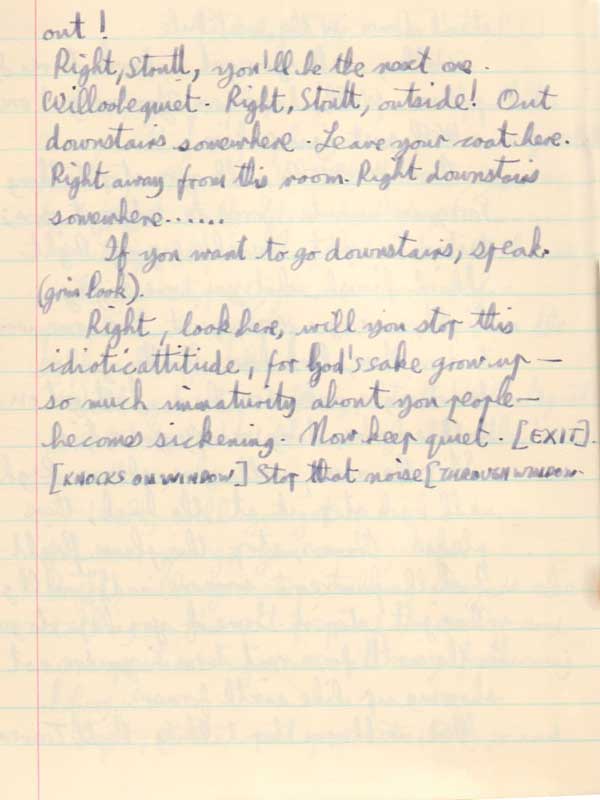 out !
Right, Stoutt, you'll be the next one.
Will oo be quiet. Right, Stoutt, outside! Out
downstairs somewhere. Leave your coat here.
Right away from this room. Right downstairs
somewhere......
If you want to go downstairs, speak.
(grim look).
Right, look here, will you stop this
idiotic attitude, for God's sake grow up —
so much immaturity about you people—
becomes sickening. Now keep quiet. [EXIT].
[KNOCKS ON WINDOW] Stop that noise [THROUGH WINDOW.